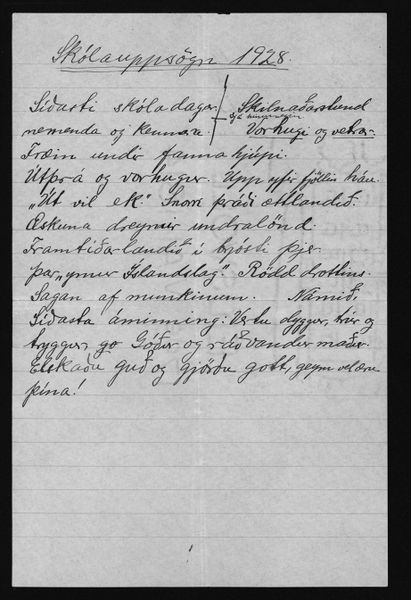 Skólauppsögn 1928.
Síðasti skóladagur Skilnaðarstund
nemenda og kennara. Vorhugi og vetrar-
Fræin undir fanna hjúpi.
Útþrá og vorhugur. Upp yfir fjöllin háu.
„Út vil ek" Snorri þráði ættlandið.
Æskuna dreymir undralönd.
Framtíðarlandið í brjósti þjer
þar „ymur Íslandslag". Rödd drottins.
Sagan af munkinum. Námið.
Síðasta áminning: Vertu dyggur, trúr og
tryggur, Góður og ráðvandur maður.
Elskaðu guð og gjörðu gott, geym vel æru
þína!